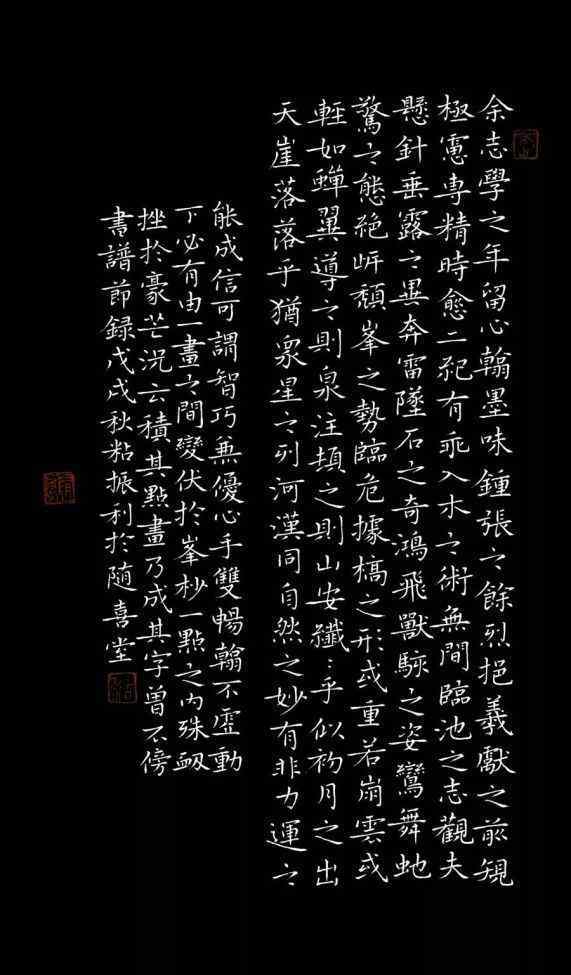 余志學之年留心翰墨味鍾張之餘烈挹羲獻之前規
極慮専精時愈二紀有乖入木之術無間臨池之志觀夫
懸針垂露之異奔雷墜石之奇鴻飛獸駭之姿鸞舞虵
驚之態絶岸頹峯之勢臨危據槁之形或重若崩雲或
輕如蟬翼導之則泉注頓之則山安纖〻乎似初月之出
天崖落落乎猶衆星之列河漢同自然之妙有非力運之
能成信可謂智巧無優心手雙暢翰不虛動
下必有由一畫之間變伏於峯杪一點之內殊衂
挫於豪芒況云積其點畫乃成其字曾不傍
書譜節録戊戌秋粘振利於隨喜堂